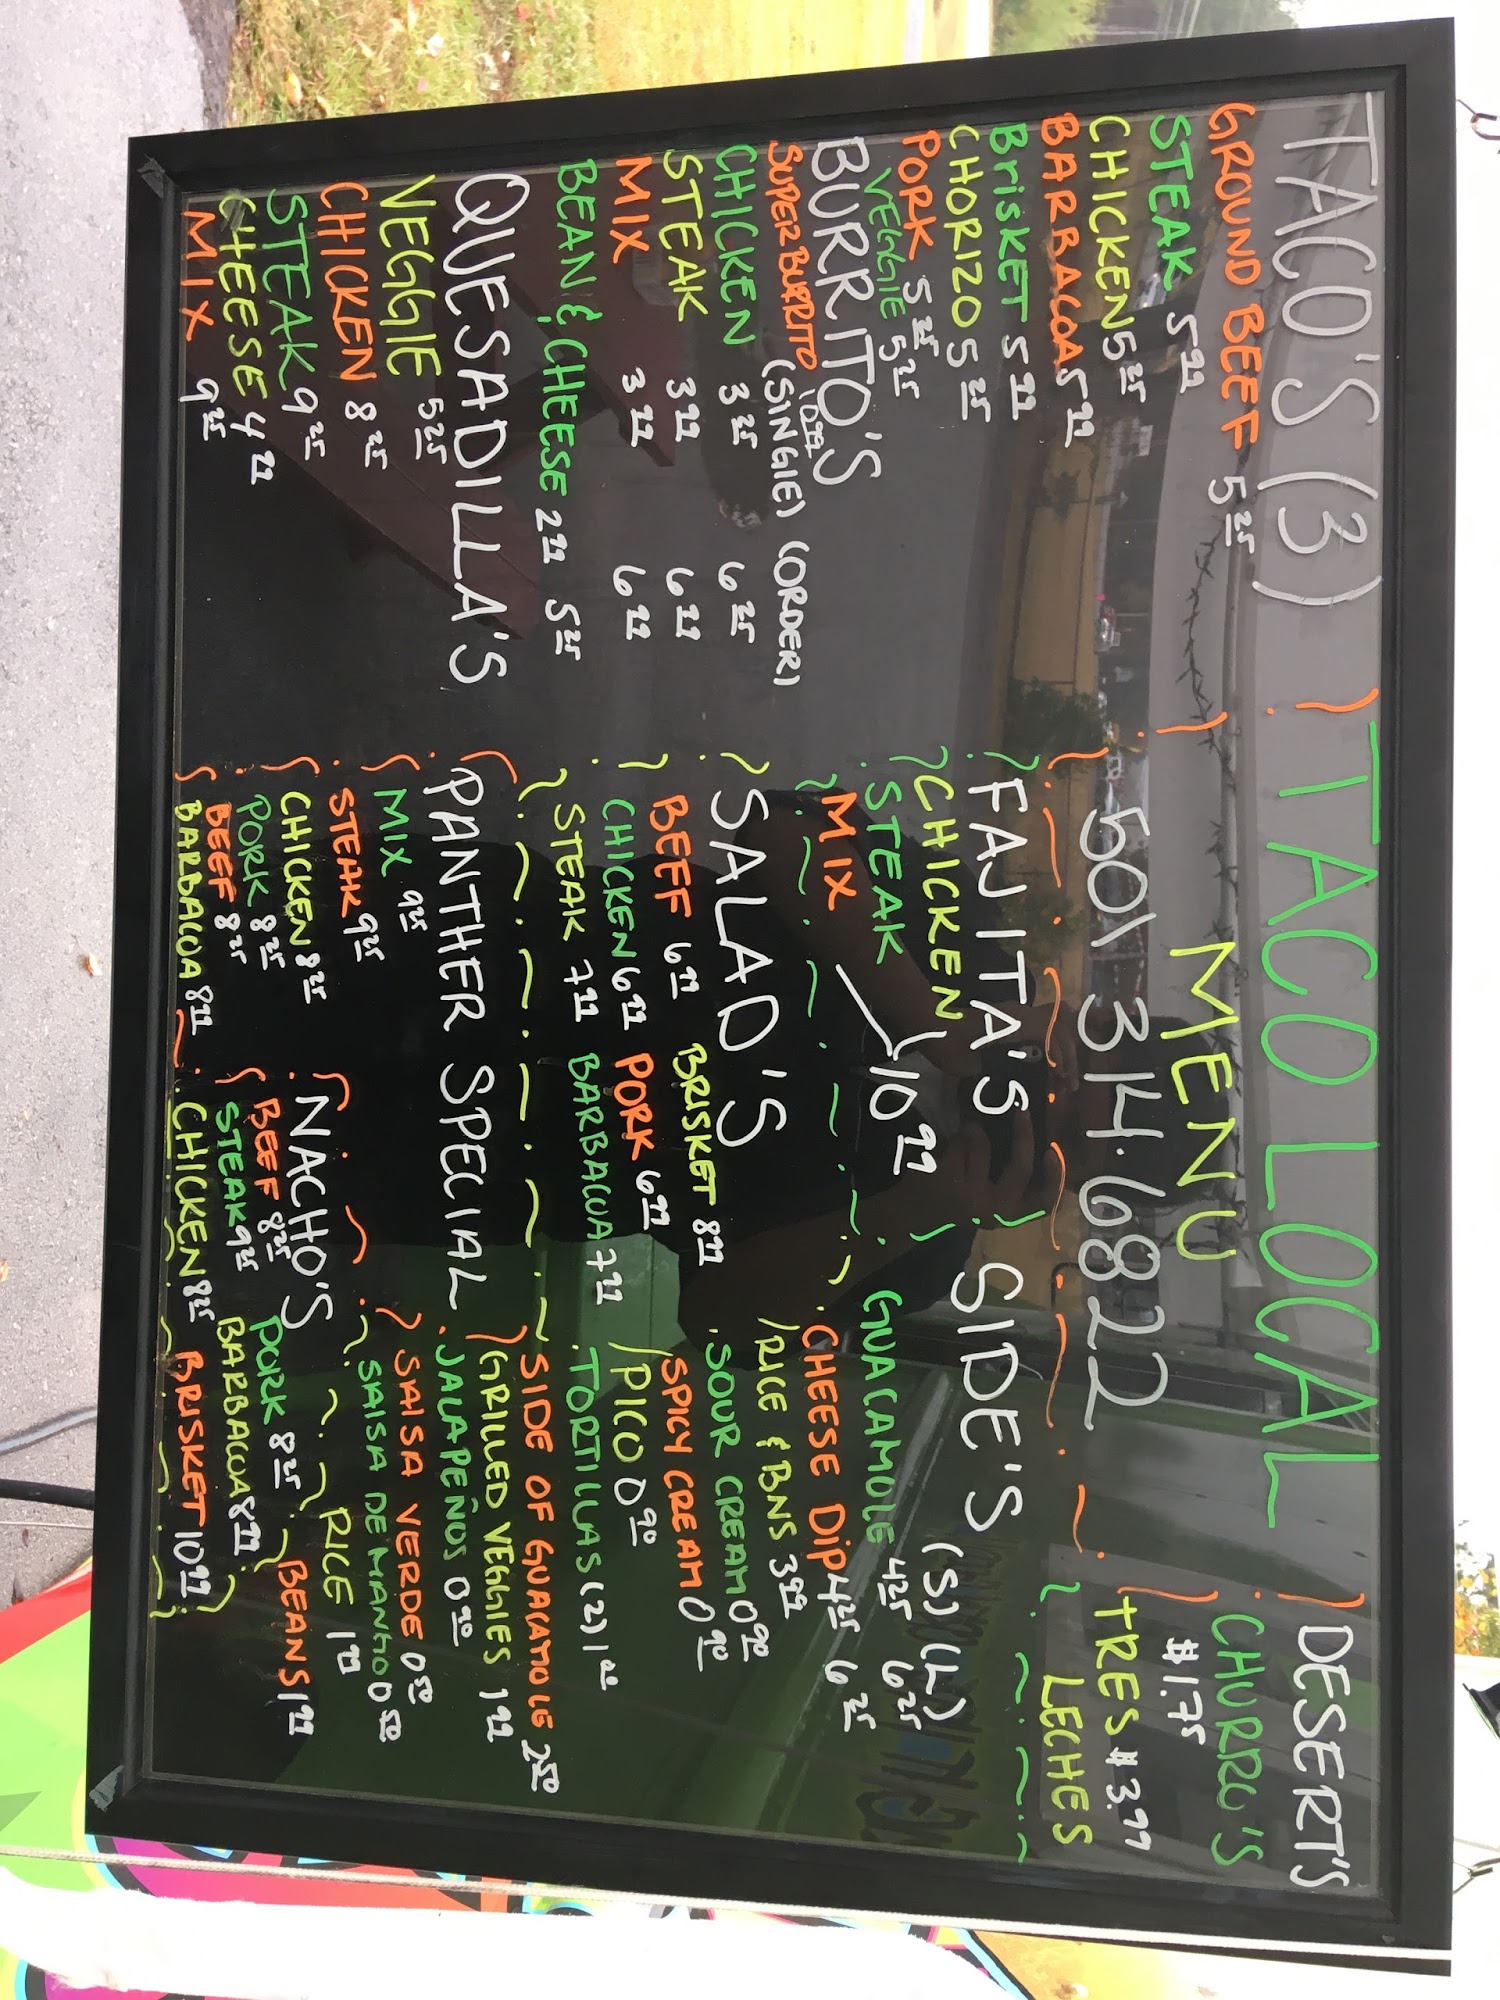 TACO LOCAL
MENU
501 314.6822
TACO'S (3)
GROUND BEEF 5.25
STEAK 5.99
CHICKEN 5.25
BARBACOA 5.99
BRISKET 5.99
CHORIZO 5.25
PORK 5.25
VEGGIE 5.25
BURRITO'S
SUPER BURRITO 10.99
(SINGlE) (ORDER)
CHICKEN 3.25 6.25
STEAK 3.99 6.99
MIX 3.99 6.99
BEAN & CHEESE 2.99 5.25
QUESADILLA'S
VEGGIE 5.25
CHICKEN 8.25
STEAK 9.25
CHEESE 4.99
MIX 9.25
FAJITA'S
CHICKEN
STEAK
MIX
10.99
SALAD'S
BEEF 6.99 BRISKET 8.99
CHICKEN 6.99 PORK 6.99
STEAK 7.99 BARBACOA 7.99
PANTHER SPECIAL
MIX 9.25
STEAK 9.25
CHICKEN 8.25
PORK 8.25
BEEF 8.25
BARBACOA 8.99
NACHO'S
BEEF 8.25 PORK 8.25
STEAK 9.25 BARBACOA 8.99
CHICKEN 8.25 BRISKET 10.99
DESERT'S
CHURRO'S
$1.75
TRES $3.99
LECHES
SIDE'S (S) (L)
GUACAMOLE 4.25 6.25
CHEESE DIP 4.25 6.25
RICE & BNS 3.99
SOUR CREAM 0.90
SPICY CREAM 0.90
PICO 0.90
TORTILLAS (2) 1.00
SIDE OF GUACAMOLE 2.50
GRILLED VEGGIES 1.99
JALAPEÑOS 0.90
SAlSA VERDE 0.50
SAlSA DE MANGO 0.50
RICE 1.99
BEANS 1.99